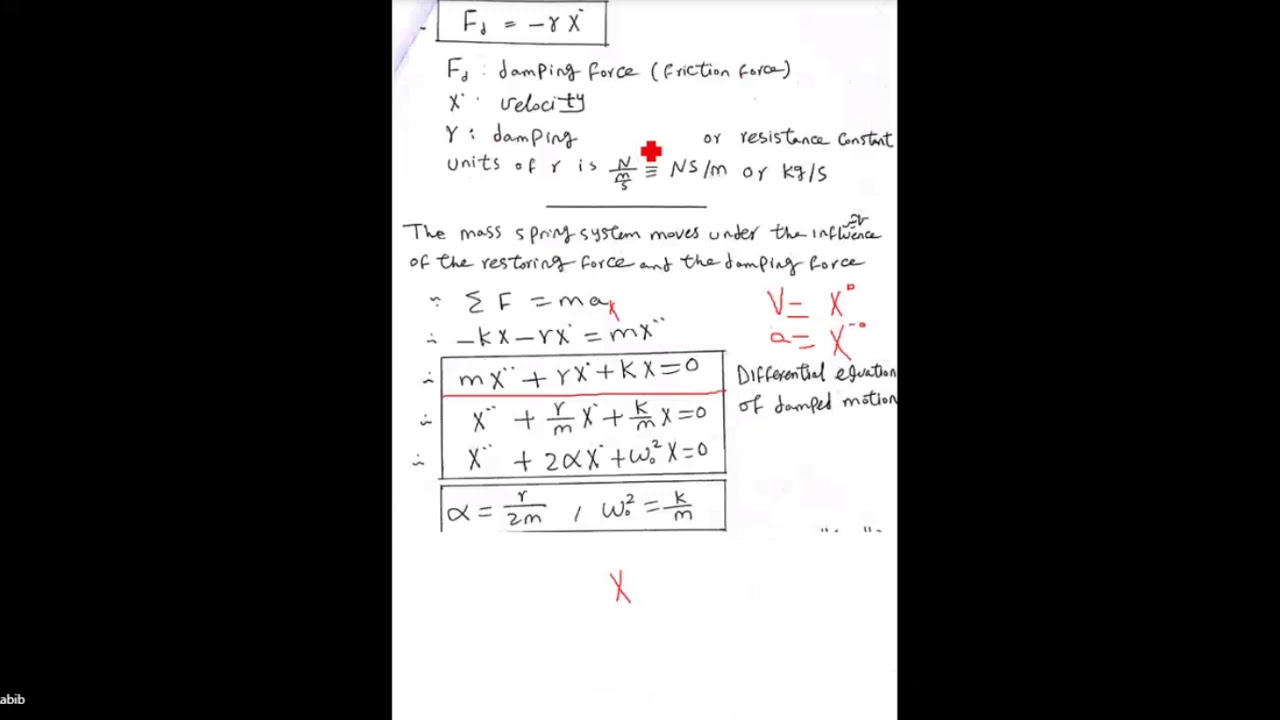 F_d = -rẋ
F_d : damping force (friction force)
ẋ : velocity
r : damping or resistance constant
units of r is N/(m/s) ≡ NS/m or kg/s
The mass spring system moves under the influence
of the restoring force and the damping force
∵ Σ F = ma_x
V = ẋ
∴ -kx - rẋ = mẍ
a = ẍ
∴ mẍ + rẋ + kx = 0
Differential equation
of damped motion
∴ ẍ + r/m ẋ + k/m x = 0
∴ ẍ + 2αẋ + ω₀² x = 0
α = r/2m , ω₀² = k/m
X
abib